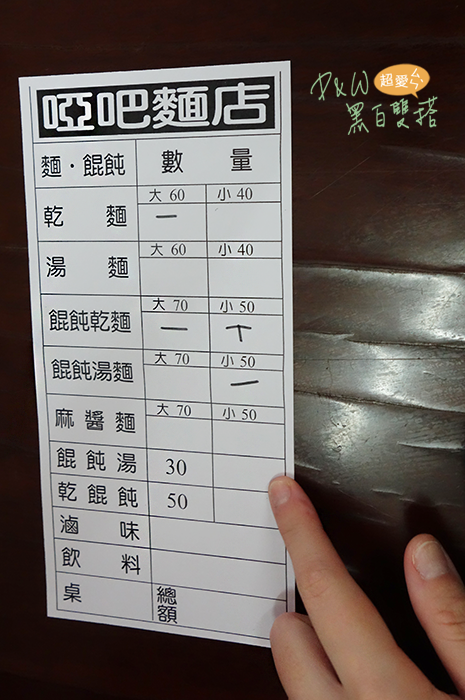 P&W 超愛ㄣˋ
黑白雙搭
啞吧麵店
麵·餛飩 數量
大 60 小 40
乾麵 一
大 60 小 40
湯麵
大 70 小 50
餛飩乾麵 一 丅
大 70 小 50
餛飩湯麵 一
大 70 小 50
麻醬麵
餛飩湯 30
乾餛飩 50
滷味
飲料
桌 總額